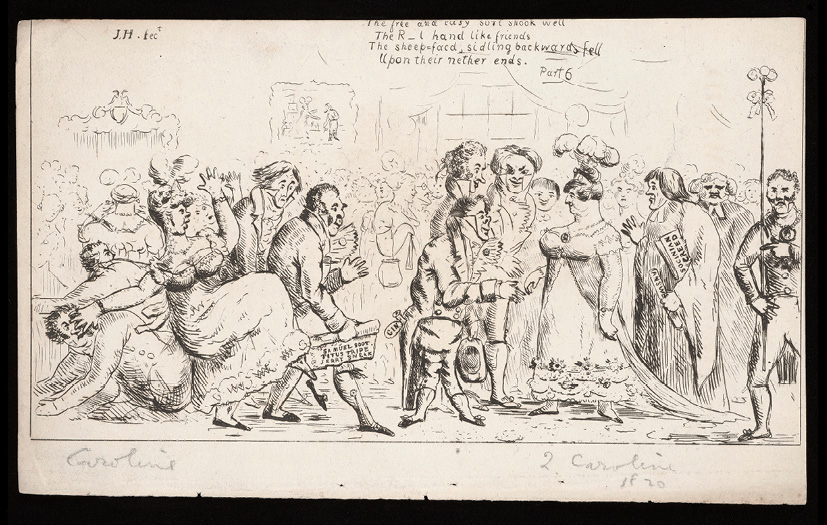 J.H. fect
The free and easy sort shook well
The R_l hand like friends
The sheep=facd, sidling backwards fell
Upon their nether ends.
Part 6
GIN
SAMUEL SOOT
TITUS TRIPE
Caroline
2 Caroline
1820